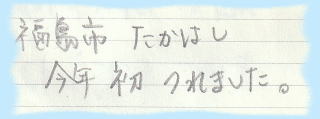 福島市 たかはし
今年初つれました。